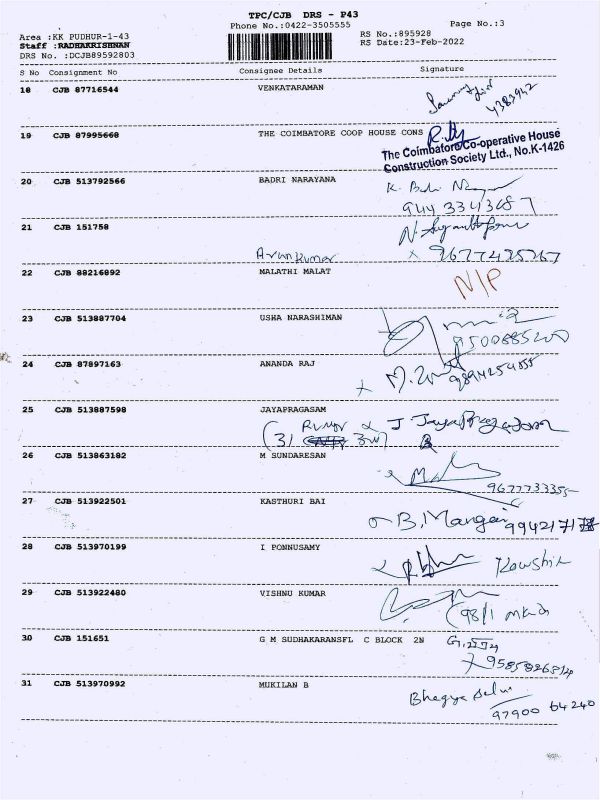 TPC/CJB DRS - P43
Phone No.:0422-3505555
Page No.:3
Area :KK PUDHUR-1-43
RS No.:895928
Staff :RADHAKRISHNAN
RS Date:23-Feb-2022
DRS No. :DCJB89592803
S No Consignment No Consignee Details Signature
18 CJB 87716544 VENKATARAMAN
4383942
19 CJB 87995668 THE COIMBATORE COOP HOUSE CONS
The Coimbatore Co-operative House
Construction Society Ltd., No.K-1426
20 CJB 513792566 BADRI NARAYANA
K. Badri
944 3343687
21 CJB 151758
Arun Kumar
9677425267
22 CJB 88216892 MALATHI MALAT N/P
23 CJB 513887704 USHA NARASHIMAN
9500685200
24 CJB 87897163 ANANDA RAJ
9894254855
25 CJB 513887598 JAYAPRAGASAM
J Jayapragasam
26 CJB 513863182 M SUNDARESAN
9677733355
27 CJB 513922501 KASTHURI BAI
B. Mangai
28 CJB 513970199 I PONNUSAMY Kowshik
29 CJB 513922480 VISHNU KUMAR
30 CJB 151651 G M SUDHAKARANSFL C BLOCK 2N
31 CJB 513970992 MUKILAN B
Bhagya
97900 64240